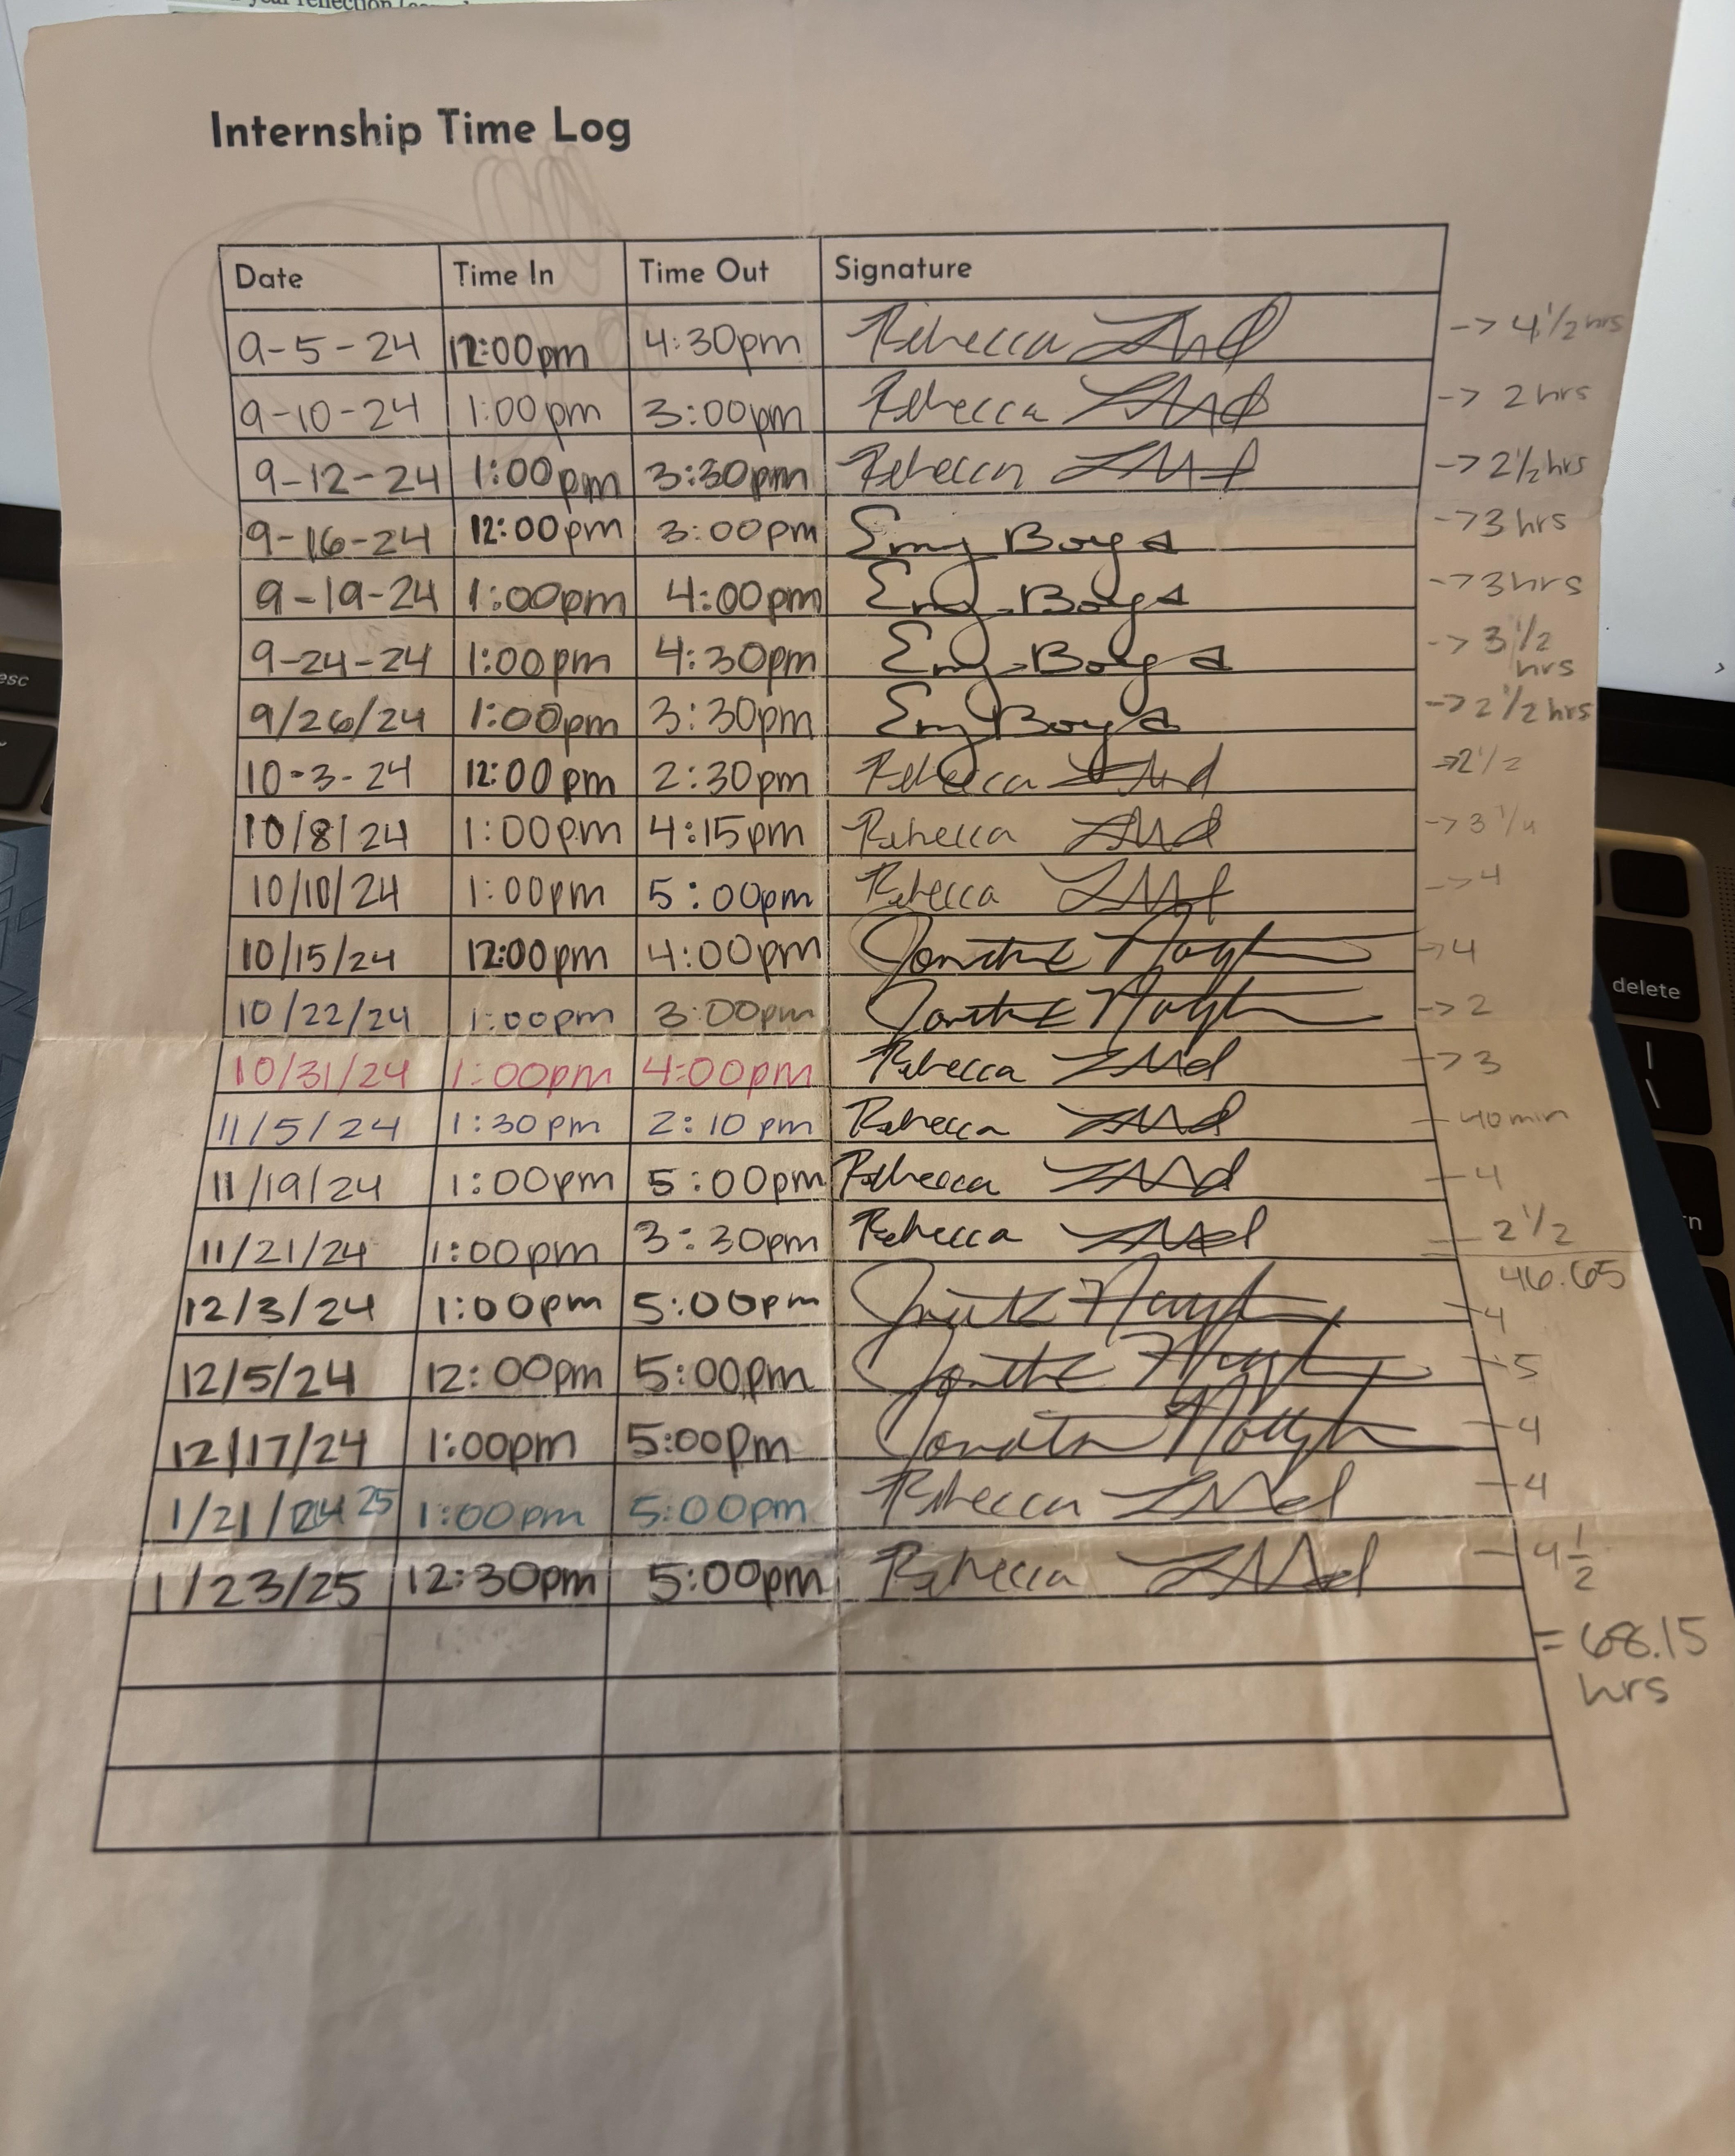 Internship Time Log
Date Time In Time Out Signature
9-5-24 12:00pm 4:30pm Rebecca -> 4 1/2 hrs
9-10-24 1:00pm 3:00pm Rebecca -> 2 hrs
9-12-24 1:00pm 3:30pm Rebecca -> 2 1/2 hrs
9-16-24 12:00pm 3:00pm Emy Boyd -> 3 hrs
9-19-24 1:00pm 4:00pm Emy Boyd -> 3 hrs
9-24-24 1:00pm 4:30pm Emy Boyd -> 3 1/2 hrs
9/26/24 1:00pm 3:30pm Emy Boyd -> 2 1/2 hrs
10-3-24 12:00pm 2:30pm Rebecca -> 2 1/2
10/8/24 1:00pm 4:15pm Rebecca -> 3 1/4
10/10/24 1:00pm 5:00pm Rebecca -> 4
10/15/24 12:00pm 4:00pm -> 4
10/22/24 1:00pm 3:00pm -> 2
10/31/24 1:00pm 4:00pm Rebecca -> 3
11/5/24 1:30pm 2:10pm Rebecca - 40min
11/19/24 1:00pm 5:00pm Rebecca - 4
11/21/24 1:00pm 3:30pm Rebecca - 2 1/2
46.65
12/3/24 1:00pm 5:00pm - 4
12/5/24 12:00pm 5:00pm - 5
12/17/24 1:00pm 5:00pm - 4
1/21/24 25 1:00pm 5:00pm Rebecca - 4
1/23/25 12:30pm 5:00pm Rebecca - 4 1/2
= 68.15
hrs
esc
delete